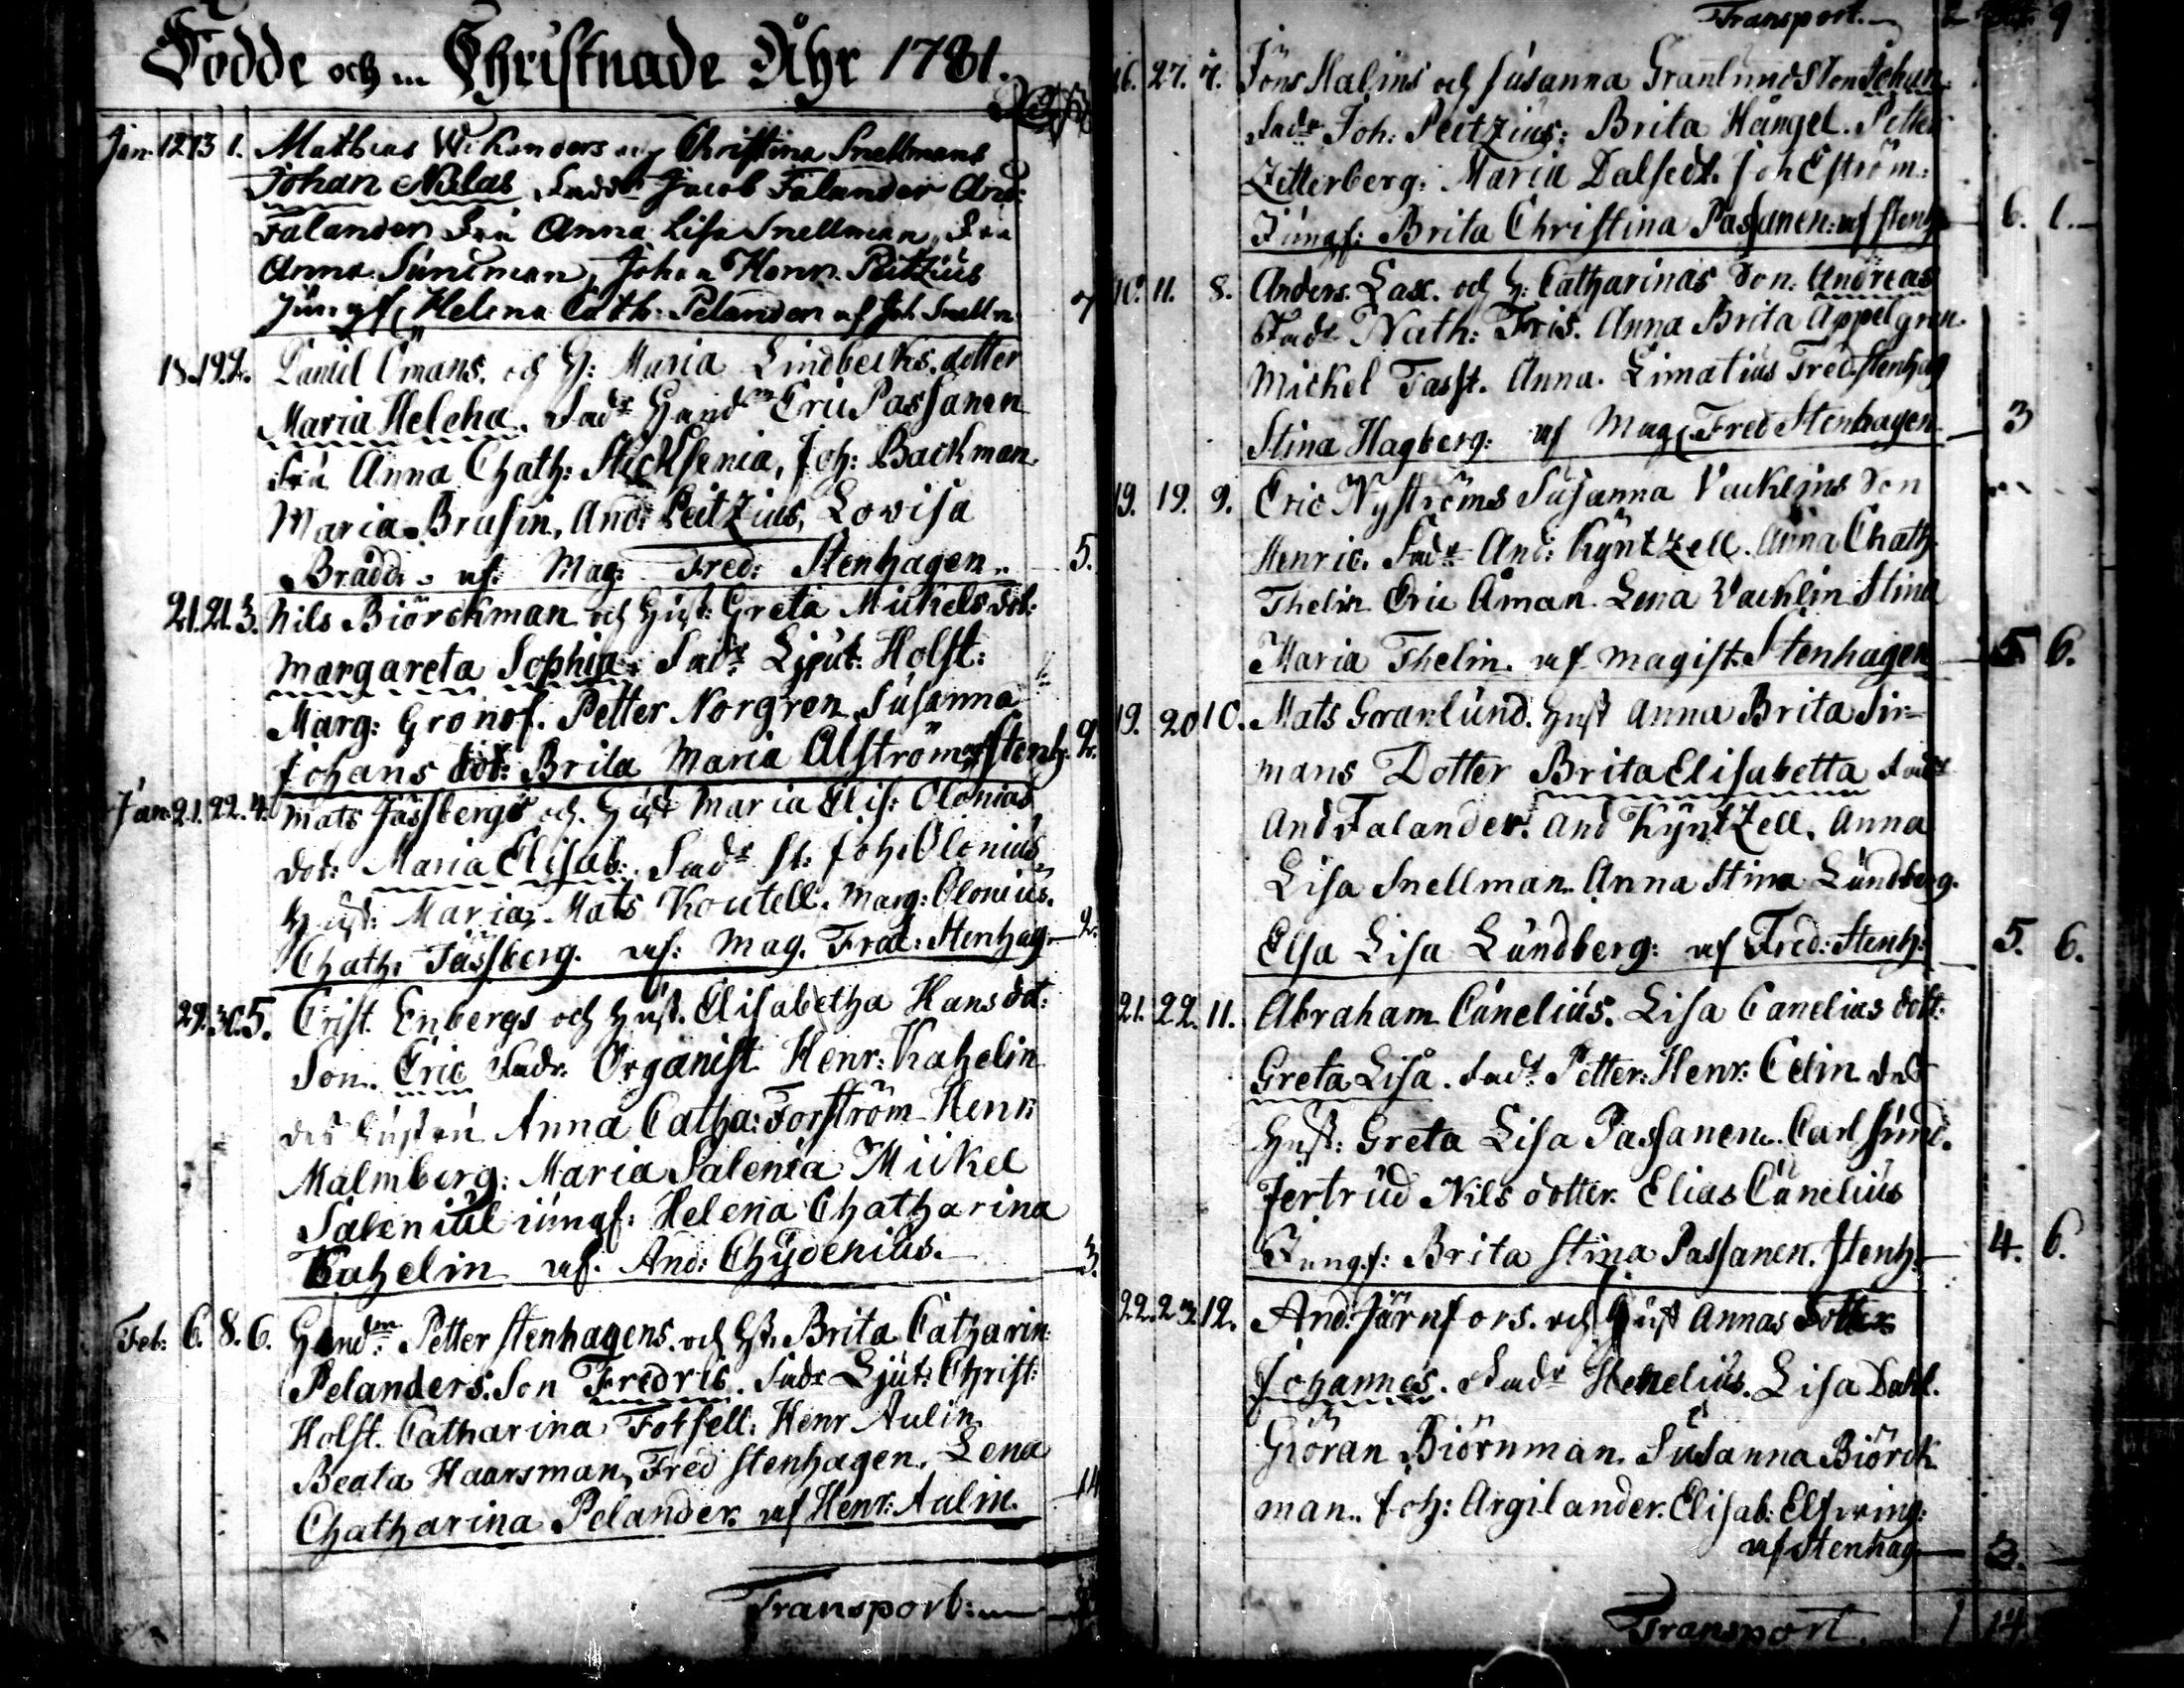 Födde och Christnade Åhr 1781.
Jan. 12 13 1. Mathias Wikanders och Christina Snellmans
Johan Niclas Fadd Jacob Falander And:
Falander Fru Anna Lisa Snellman, Fru
Anna Sundman, Johan Henr. Peitzius
Jungf. Helena Cath: Pelander af Joh Snellm. 7
18. 19. 2. Daniel Åmans och H: Maria Lindbecks dotter
Maria Helena. Fadr Handm Eric Passanen
Fru Anna Chath: Joh: Backman.
Maria Brusin, And: Peitzius, Lovisa
Brådd. af: Mag: Fred: Stenhagen. 5.
21. 21. 3. Nils Biörckman och Hust: Greta Mickels dot:
Margareta Sophia. Fadr Ljeut: Holst:
Marg: Gronof. Petter Norgren Susanna
Johans dot: Brita Maria Alström af Stenh. 2.
Jan. 21. 22. 4. Mats Jässbergs och Hust Maria Elis: Olonias
dot: Maria Elisab: Fadr St: Joh: Olonius
Hust: Maria, Mats Koutell. Marg: Olonius.
Chath: Jässberg. af: Mag. Fred: Stenhag. 2.
29. 30. 5. Crist. Enbergs och Hust. Elisabetha Hans dot:
Son. Eric Fadr. Organist Henr: Kahelin
des hustru Anna Catha: Forström Henr:
Malmberg: Maria Salenia Mickel
Salenius jungf: Helena Chatharina
Kahelin af. And: Chydenius. 3.
Feb: 6. 8. 6. Handm Petter Stenhagens. och Hst. Brita Catharin:
Pelanders. Son Fredric. Fadr Ljut: Christ:
Holst. Catharina Forsell: Henr Aulin
Beata Haarsman, Fred Stenhagen. Lena
Chatharina Pelander. af Henr: Aulin. 14
Transport:
Transport. 9
16. 27. 7. Jöns Malins och Susanna Granlunds Son Johan
Fadr Joh: Peitzius: Brita Hångel. Petter
Zetterberg: Maria Dalstedt. Joh Eström:
Jungf: Brita Christina Passanen: af Stenh 6. 1.
10. 11. 8. Anders. Lax. och H: Catharinas Son. Andreas
Fadr Nath: Fris. Anna Brita Appelgren.
Mickel Fasst. Anna. Limatius Fred Stenhag
Stina Hagberg: af Mag. Fred Stenhagen. 3
19. 19. 9. Eric Nyströms Susanna Vacklins Son
Henric. Fadr And: Kyntzell. Anna Chath
Thelin Eric Åman. Lena Vacklin Stina
Maria Thelin. af magist. Stenhagen 5 6.
19. 20 10. Mats Granlund. Hust Anna Brita Sir-
mans Dotter Brita Elisabetta Fadr
And Falander. And Kyntzell. Anna
Lisa Snellman. Anna Stina Lundberg.
Elsa Lisa Lundberg: af Fred: Stenh: 5. 6.
21. 22. 11. Abraham Canelius. Lisa Canelias dott:
Greta Lisa. Fadr Petter: Henr: Celin
Hust: Greta Lisa Passanen. Carl Sund.
Jertrud Nils dotter. Elias Canelius
Jungf: Brita Stina Passanen. Stenh. 4. 6.
22. 23. 12. And: Järnfors. och Hust Annas Dotter
Johannes. Fadr Stenelius. Lisa Dahl.
Giöran Biörnman. Susanna Biörck
man. Joh: Argilander. Elisab: Elfwing:
af Stenhag 3.
Transport. 14